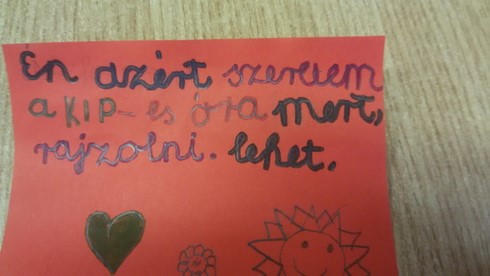 Én azért szeretem
a KIP-es óra mert,
rajzolni. lehet.